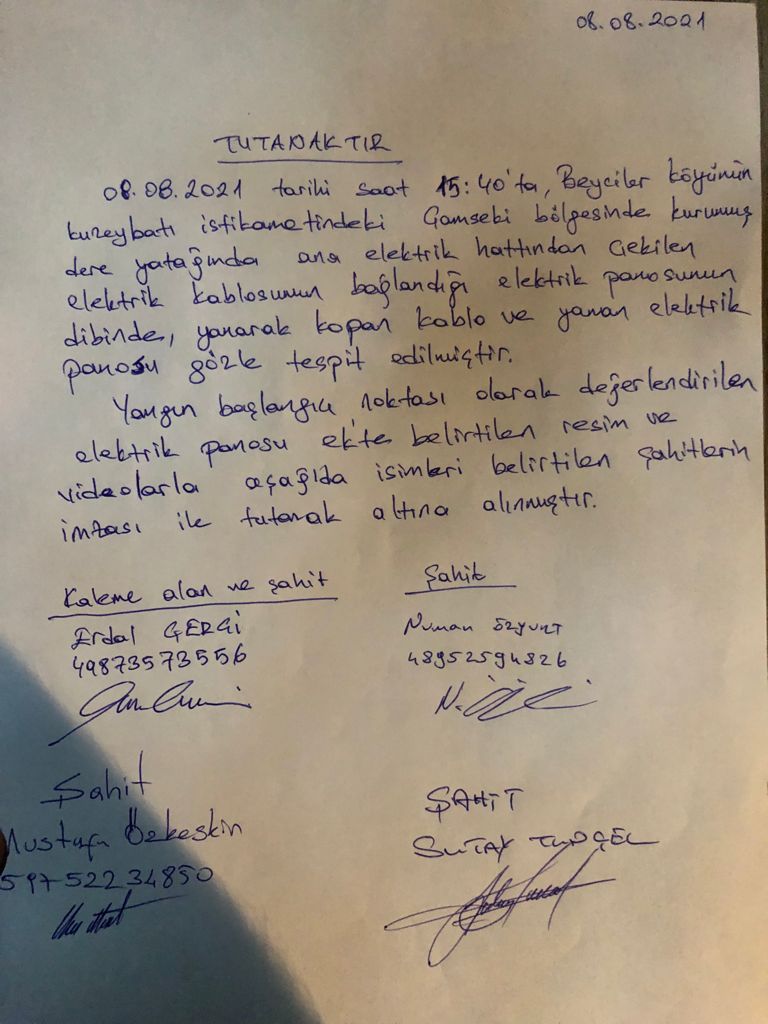 08.08.2021
TUTANAKTIR
08.08.2021 tarihi saat 15:40'ta, Beyciler köyünün
kuzeybatı istikametindeki Gamseki bölgesinde kurumuş
dere yatağında ana elektrik hattından çekilen
elektrik kablosunun bağlandığı elektrik panosunun
dibinde, yanarak kopan kablo ve yanan elektrik
panosu gözle tespit edilmiştir.
Yangın başlangıcı noktası olarak değerlendirilen
elektrik panosu ek'te belirtilen resim ve
videolarla aşağıda isimleri belirtilen şahitlerin
imzası ile tutanak altına alınmıştır.
Kaleme alan ve şahit
Şahit
Erdal ÇERGİ
Numan ÖZYURT
49873573556
48952594826
Şahit
ŞAHİT
Mustafa Özkeskin
59752234850